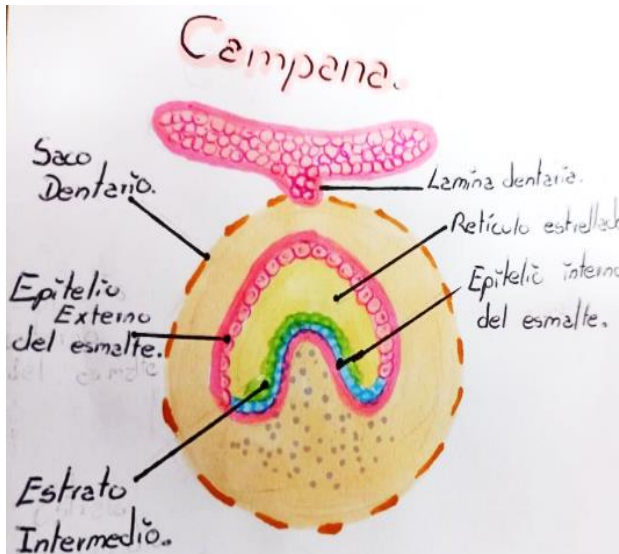 Campana.
Saco
Dentario.
Lamina dentaria.
Retículo estrellado
Epitelio interno
del esmalte.
Epitelio
Externo
del esmalte.
Estrato
Intermedio.